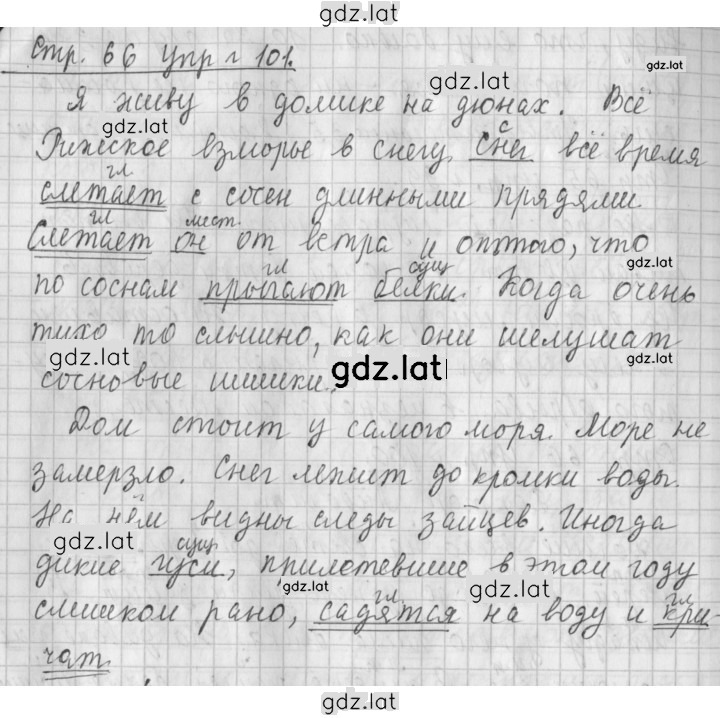 gdz.lat
Стр. 66 упр г 101.
gdz.lat
gdz.lat
Я живу в домике на дюнах. Всё
gdz.lat
с
Рижское взморье в снегу. Снег всё время
гл
слетает с сосен длинными прядями.
гл мест.
Слетает он от ветра и оттого, что
gdz.lat
гл сущ
по соснам прыгают белки. Когда очень
тихо то слышно, как они шелушат
gdz.lat gdz.lat gdz.lat
сосновые шишки.
Дом стоит у самого моря. Море не
замерзло. Снег лежит до кромки воды.
На нём видны следы зайцев. Иногда
gdz.lat сущ gdz.lat
дикие гуси, прилетевшие в этом году
gdz.lat gdz.lat
гл гл
слишком рано, садятся на воду и кри-
чат.
gdz.lat